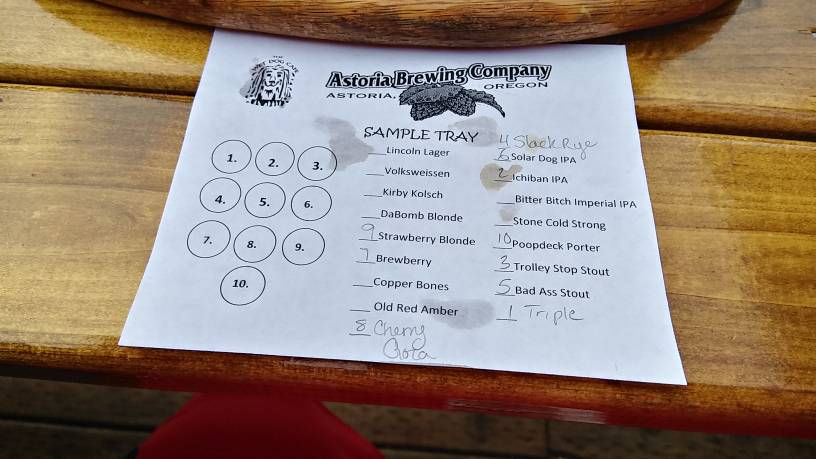 THE
WET DOG CAFE
Astoria Brewing Company
ASTORIA, OREGON
SAMPLE TRAY
1. 2. 3.
4. 5. 6.
7. 8. 9.
10.
___Lincoln Lager
___Volksweissen
___Kirby Kolsch
___DaBomb Blonde
9 Strawberry Blonde
7 Brewberry
___Copper Bones
___ Old Red Amber
8 Cherry
4 Slack Rye
6 Solar Dog IPA
2 Ichiban IPA
___Bitter Bitch Imperial IPA
___Stone Cold Strong
10 Poopdeck Porter
3 Trolley Stop Stout
5 Bad Ass Stout
1 Triple